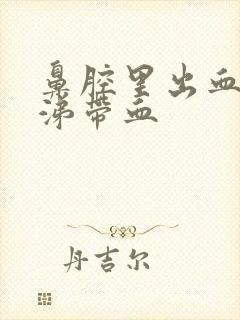 鼻腔里出血
涕带血
丹吉尔